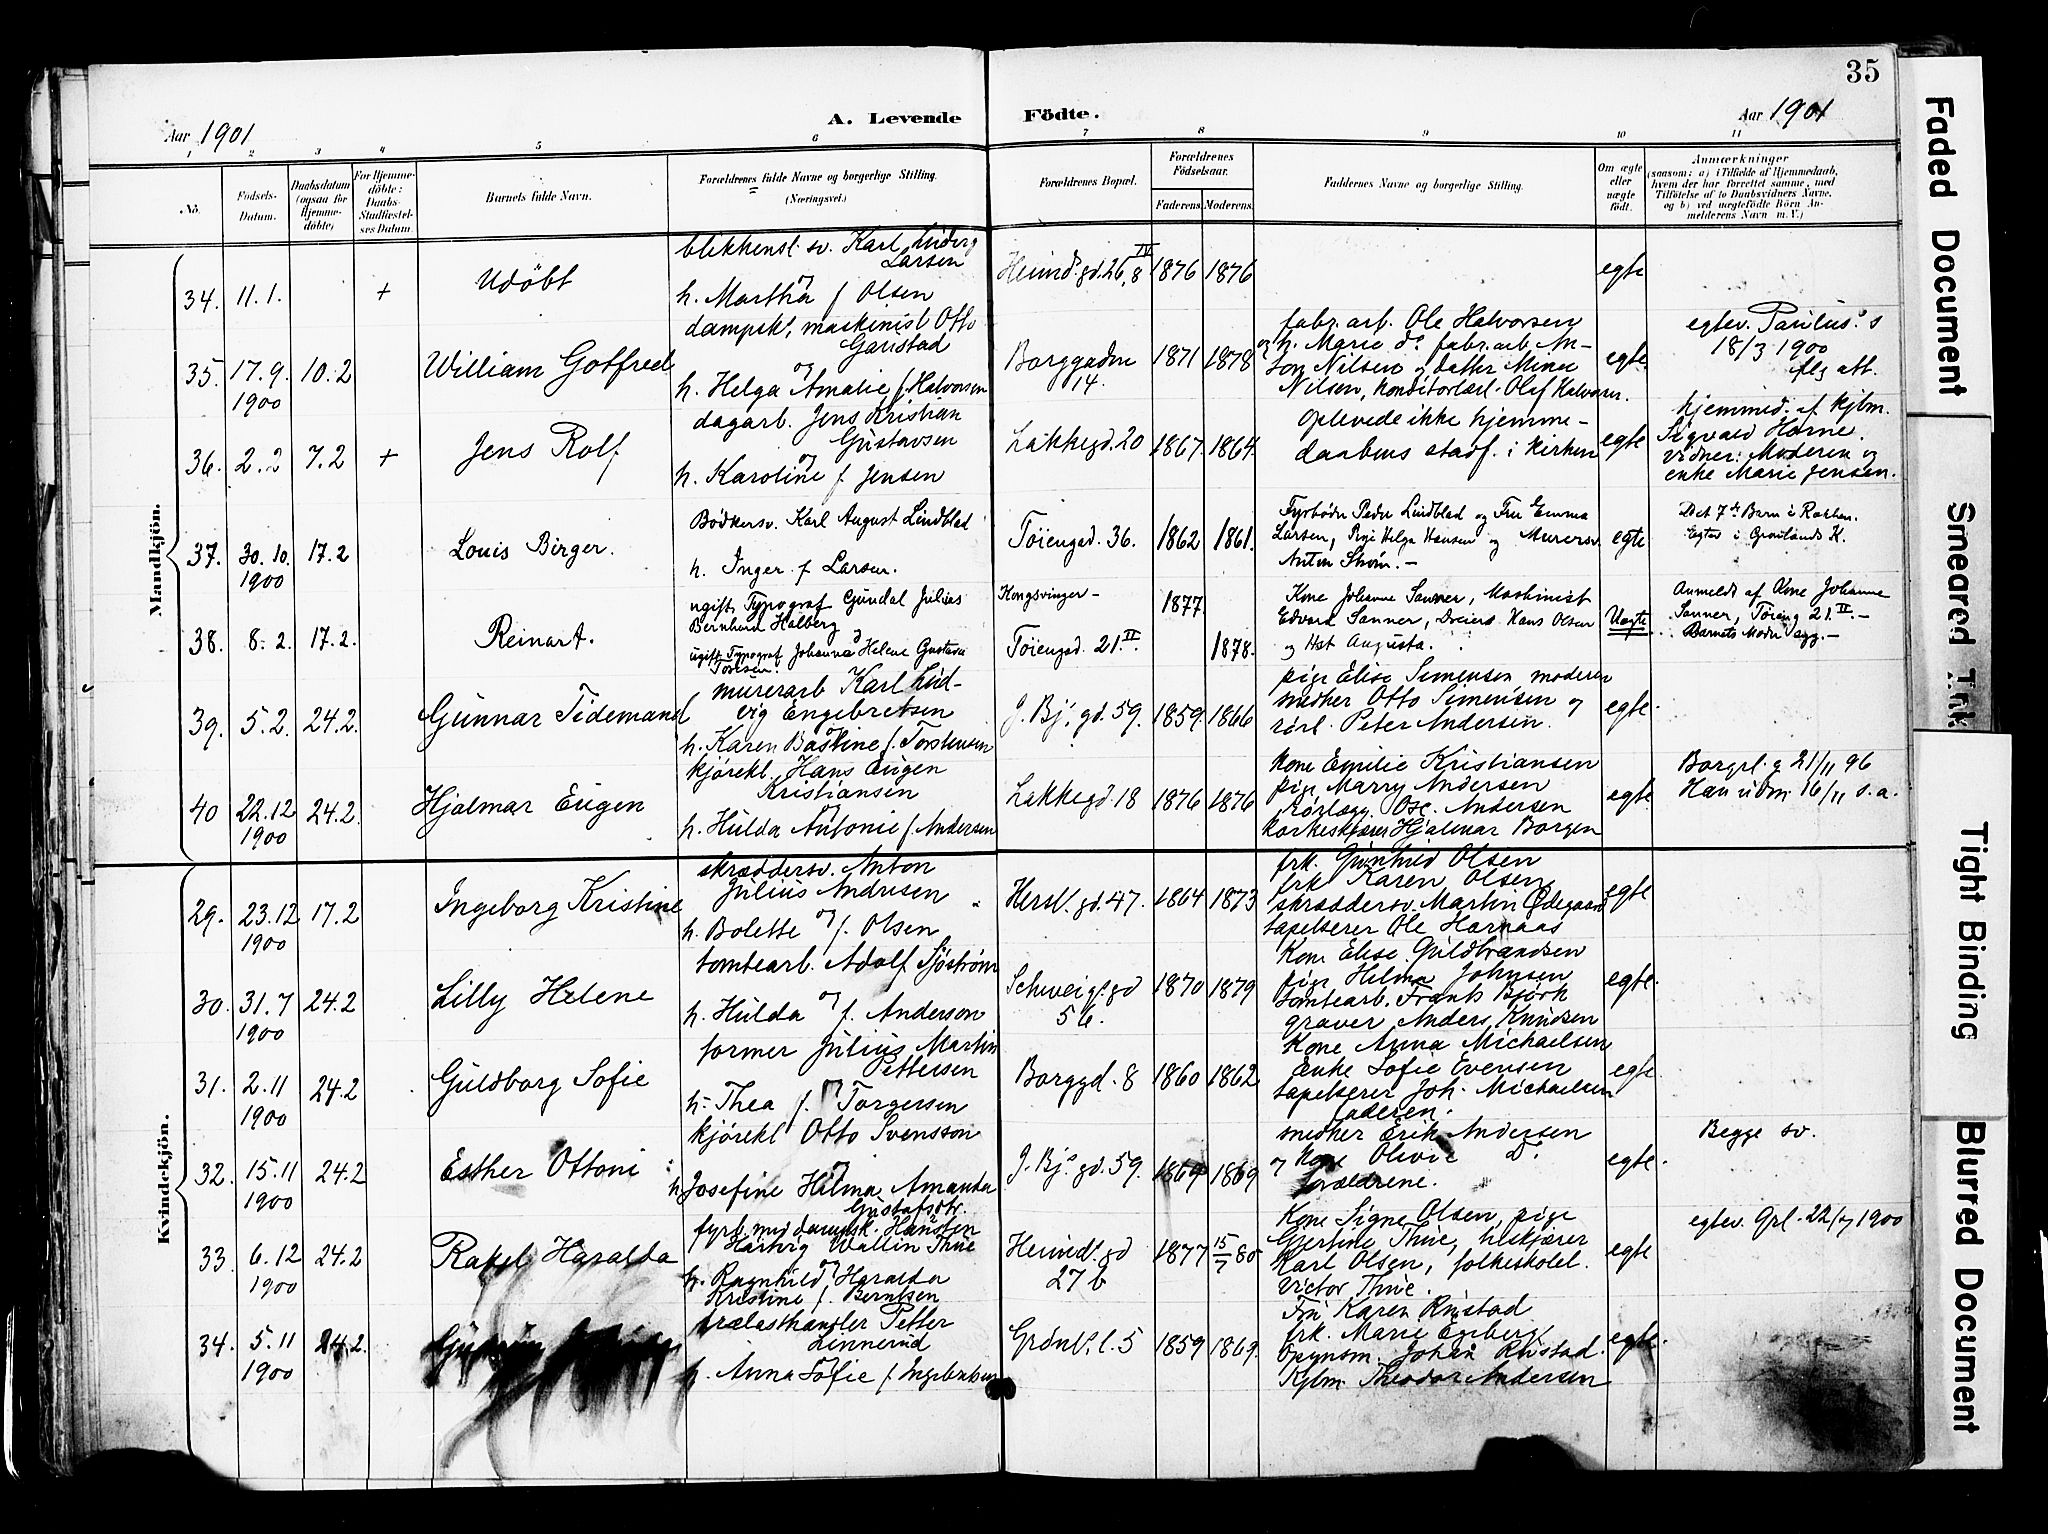 35
Aar 1901
A. Levende Födte.
Aar 1901
1 2 3 4 5 6 7 8 9 10 11
No.
Födsels-
Datum.
Daabsdatum
(ogsaa for
Hjemme-
döbte)
For Hjemme-
döbte:
Daabs-
Stadfæstel-
ses Datum.
Barnets fulde Navn.
Forældrenes fulde Navne og borgerlige Stilling.
(Næringsvei.)
Forældrenes Bopæl.
Forældrenes
Födselsaar.
Faderens. Moderens.
Faddernes Navne og borgerlige Stilling.
Om ægte
eller
uægte
født.
Anmærkninger
(saasom: a) i Tilfælde af Hjemmedaab,
hvem der har forrettet samme, med
Tilföielse af to Daabsvidners Navne,
og b) ved uægtefödte Börn An-
melderens Navn m. V.)
Mandkjön.
34. 11.1. + Udöbt
blikkensl. sv. Karl Ludvig
Larsen
og
h. Martha f. Olsen
Heimd. gd. 26, 8 IV 1876 1876 egte
35. 17.9. 10.2 William Gotfred
1900
dampsk. maskinist Otto
Garistad
og
h. Helga Amalie f. Halvorsen
Borggaden
14.
1871 1878
fabr. arb. Ole Halvorsen
og h. Marie do. fabr. arb. An-
ton Nilsen og datter Minee
Nilsen, konditorlærl. Olaf Halvorsen.
egte.
egtev. Paulus' s
18/3 1900
flg att.
36. 2.2 7.2 + Jens Rolf
dagarb. Jens Kristian
Gustavsen
og
h. Karoline f. Jensen
Lakkegd. 20 1867. 1864.
Oplevede ikke hjemme-
daabens stadf. i kirken
egte
hjemmed. af kjbm.
Sigvald Horne.
vidner: Moderen og
enke Marie Jensen.
37. 30.10. 17.2 Louis Birger.
1900
Bödkersv. Karl August Lindblad
h. Inger f. Larsen.
Töiengad. 36. 1862 1861.
Fyrböder Peder Lindblad og Fru Emma
Larsen, Pige Helga Hansen og Murersv.
Anton Ström. -
egte
Det 7de Barn i Rækken.
Egtev. i Grønlands K.
38. 8.2. 17.2. Reinart.
ugift Typograf Gundal Julius
Bernhard Halberg
og
ugift Typograf Johanna Helene Gustava
Toresen.
Kongsvinger -
Töiengad. 21. II
1877
1878.
Kone Johanne Sanner, Maskinist
Edvard Sanner, Dreiers Hans Olsen
og Hst Augusta.
Uægte
Anmeldt af Kone Johanne
Sanner, Töieng 21. II -
Barnets Moder
39. 5.2. 24.2. Gunnar Tidemand
murerarb Karl Lud-
vig Engebretsen
og
h. Karen Bastine f. Torstensen
J. Bj. gd. 59. 1859. 1866
pige Elise Simensen moderen
snedker Otto Simensen og
rörl. Peter Andersen.
egte.
40 22.12 24.2. Hjalmar Eugen
1900
kjörekl. Hans Eugen
Kristiansen
og
h. Hulda Antonie f. Andersen
Lakkegd. 18 1876 1876
Kone Emilie Kristiansen
pige Marry Andersen
Rörlægg. Osc. Andersen
korkeskjærer Hjalmar Borgen
egte
Borgrl. g 21/11 96
16/11 s.a.
Kvindekjön.
29. 23.12 17.2 Ingeborg Kristine
1900
skræddersv. Anton
Julius Andresen
og
h. Bolette f. Olsen
Hersl. gd. 47. 1864 1873
frk. Gunhild Olsen
frk Karen Olsen
skræddersv. Martin Ödegaard
tapetserer Ole Harnaas
egte
30. 31.7 24.2 Lilly Helene
1900
tomtearb. Adolf Sjöström
og
h. Hulda f. Anderson
Schweig. gd
56.
1870 1879
Kone Elise Guldbrandsen
pige Helma Johnsen
tomtearb. Frants Björk
graver Anders Knudsen
egte.
31. 2.11 24.2 Guldborg Sofie
1900
former Julius Martin
Pettersen
og
h. Thea f. Torgersen
Borggd. 8 1860 1862
Kone Anna Michaelsen
Enke Sofie Evensen
tapetserer Joh. Michaelsen
faderen.
egte.
32. 15.11 24.2 Esther Ottoni
1900
kjörekl Otto Svensson
og
h. Josefine Hilma Amanda
Gustafsdtr.
J. Bj. gd. 59. 1869 1869
snedker Erik Andersen
og Kone Olivie Do.
forældrene.
egte.
Begge sv.
33. 6.12 24.2 Rakel Haralda
1900
fyrb. mv dampsk. Hansten
Hartvig Wallin Thue
og
h. Ragnhild Haralda
Kristine f. Berntsen
Heimd. gd
27 b
1877 15/7 80
Kone Signe Olsen, pige
Gjertine Thue,
Karl Olsen, folkeskolel.
Victor Thue.
egte
egtev. Grl. 22/7 1900
34. 5.11 24.2.
1900
trælasthandler Petter
Linnerud
og
h. Anna Sofie f. Ingebretsen
Grönl. l. 5 1859 1869.
Fru Karen Rustad
frk. Marie Engberg
Opsynsm. Johan Rustad.
Kjbm. Theodor Andersen
egte.
Faded Document
Smeared Ink
Tight Binding
Blurred Document